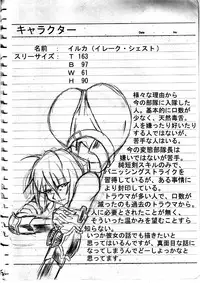 キャラクター
名前 : イルカ（イレーク・シェスト）
スリーサイズ : T 163
B 97
W 61
H 90
様々な理由から
今の部隊に入隊した
人。基本的に口数が
少なく、天然毒舌。
人を嫌ったり好いたり
する人ではないが
苦手な人はいる。
今の変態部隊長は
嫌いではないが苦手。
純短剣スキルのみで、
バニシングストライク
を習得しているが、ある事情に
より封印している。
トラウマが多い人で、口数が
減ったのも過去のトラウマから。
人に必要とされたことが無く、
そういった温かみを望むことすら
知らない。
いつか彼女の話でも描きたいと
思ってはいるんですが、真面目な話に
なってしまうんでどーしよっかなと
思ってます。